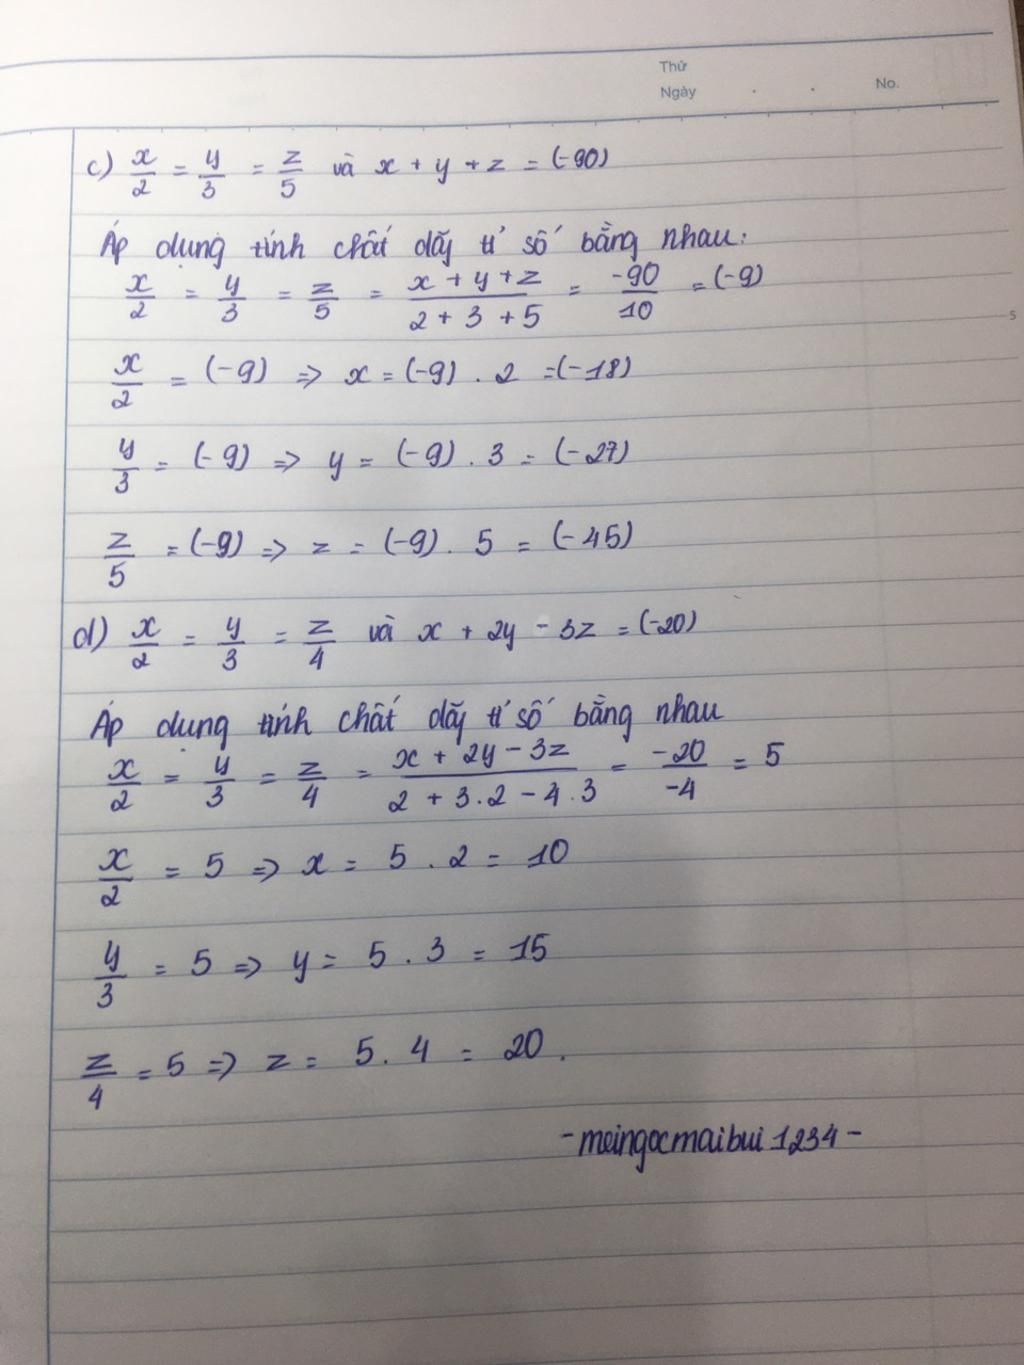 Thứ
Ngày . . No.
c) x/2 = y/3 = z/5 và x + y + z = (-90)
Áp dụng tính chất dãy tỉ số bằng nhau:
x/2 = y/3 = z/5 = (x + y + z)/(2 + 3 + 5) = -90/10 = (-9)
x/2 = (-9) => x = (-9) . 2 = (-18)
y/3 = (-9) => y = (-9) . 3 = (-27)
z/5 = (-9) => z = (-9) . 5 = (-45)
5
d) x/2 = y/3 = z/4 và x + 2y - 3z = (-20)
Áp dụng tính chất dãy tỉ số bằng nhau
x/2 = y/3 = z/4 = (x + 2y - 3z)/(2 + 3.2 - 4.3) = -20/-4 = 5
x/2 = 5 => x = 5 . 2 = 10
y/3 = 5 => y = 5 . 3 = 15
z/4 = 5 => z = 5 . 4 = 20 .
- meingocmaibui 1234 -